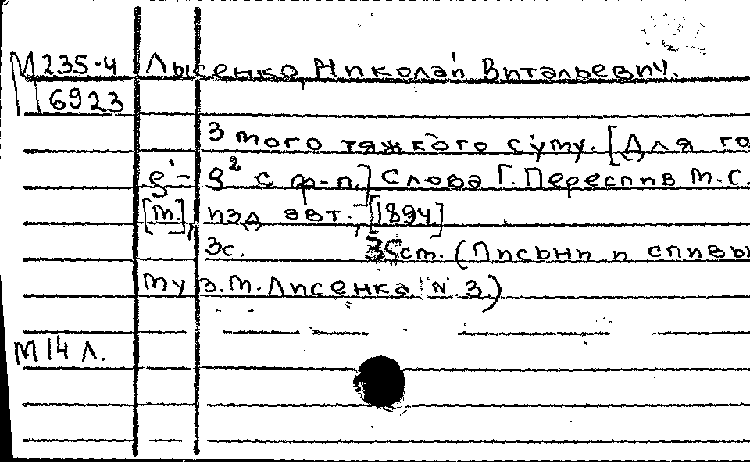 М 235-4 Лысенко, Николай Витальевич.
М 6923
З того тяжкого суму. [Для го
g¹ - g² с ф-п.] Слова Г. Переспив М.С.
[М.], изд. авт., [1894.]
3с. 35cm. (Письни и спивы
му з. М. Лисенка N 3.)
М 14 Л.